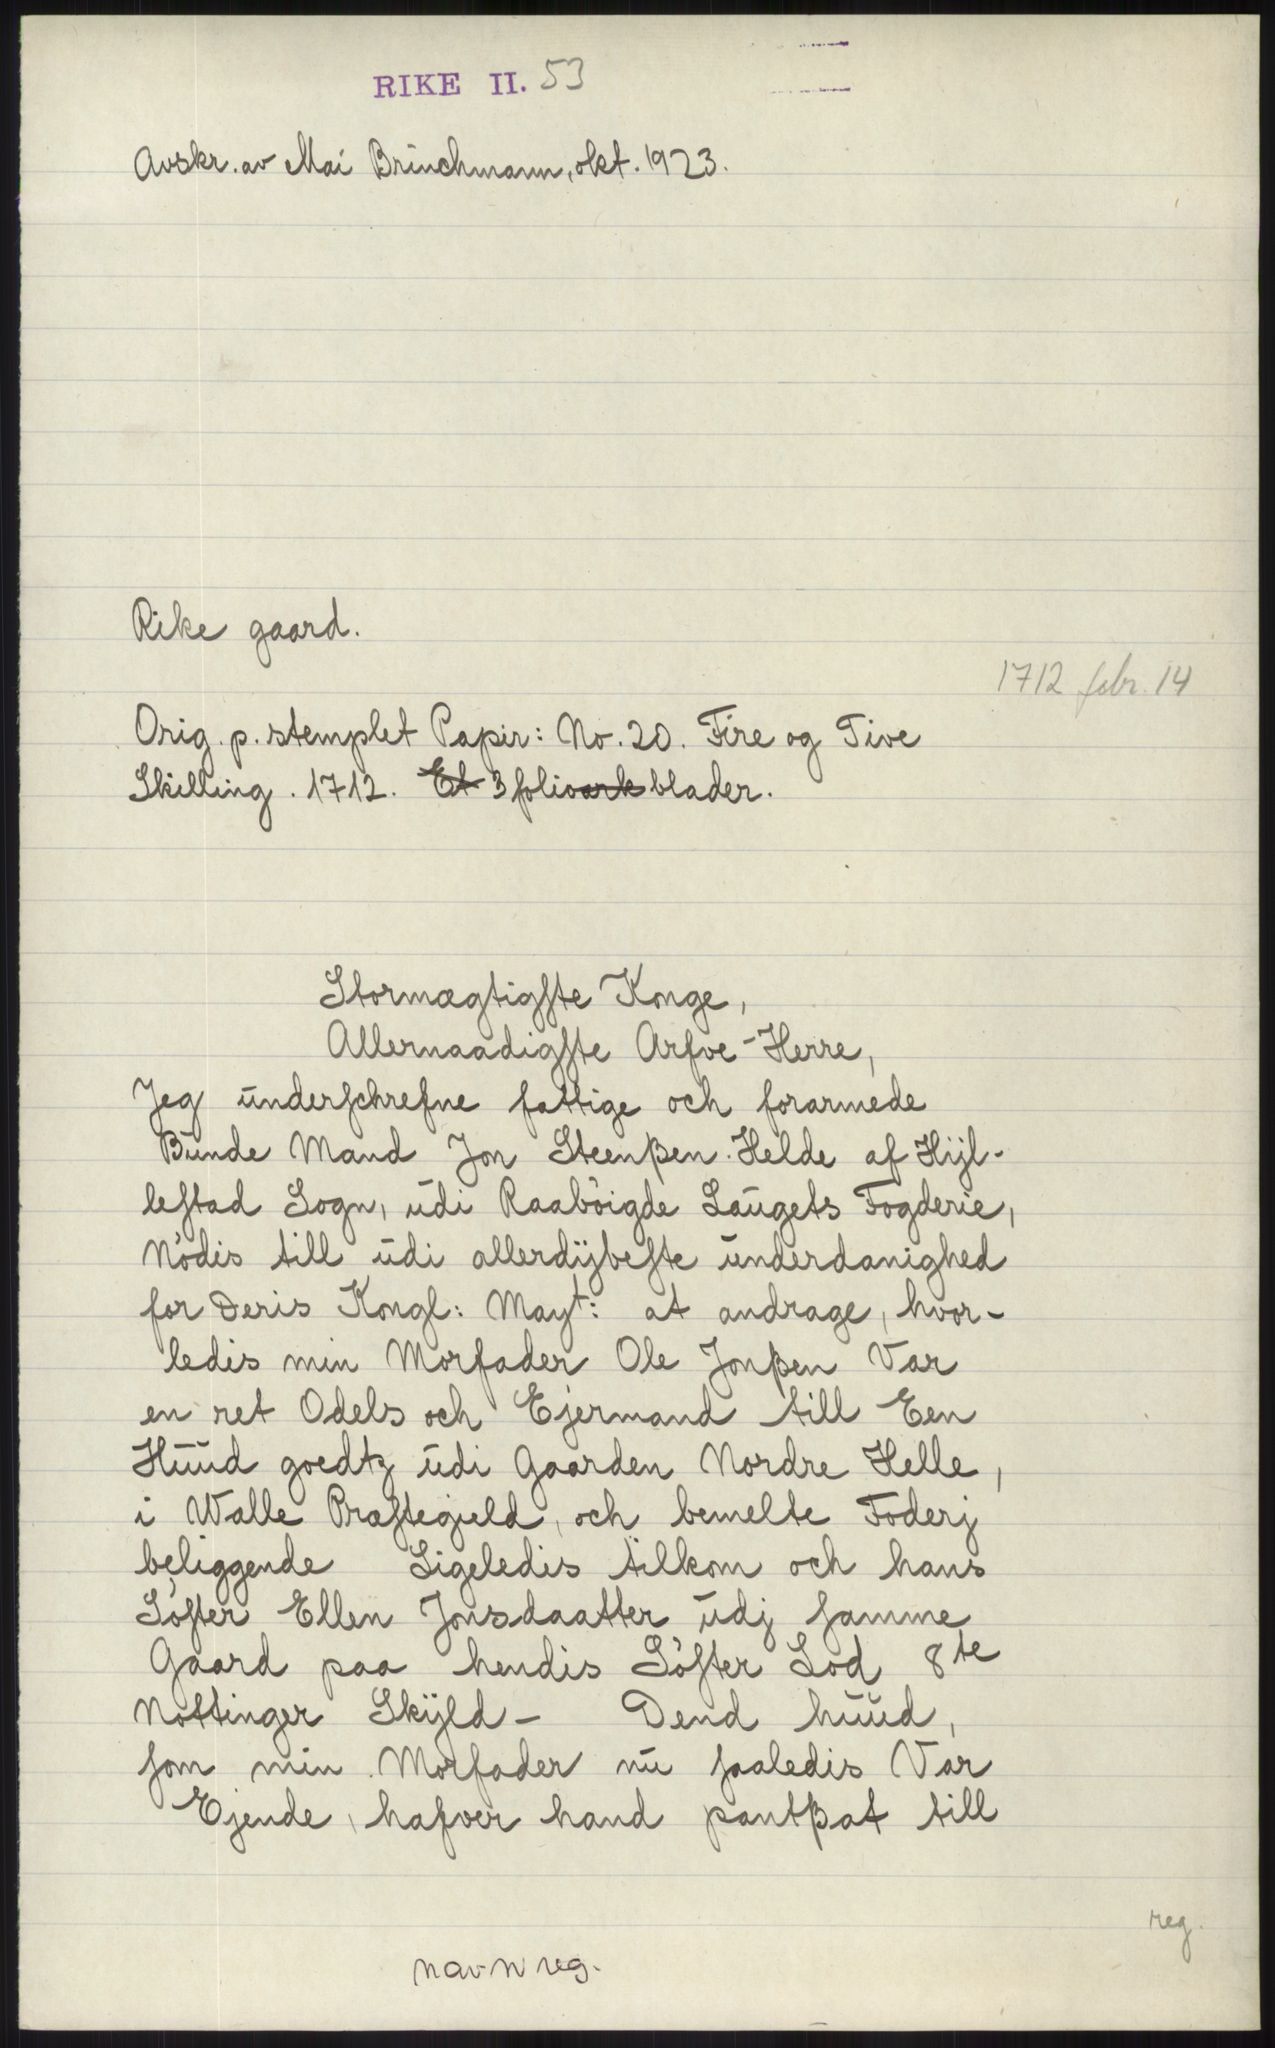 RIKE II. 53
Avskr. av Mai Brinchmann, okt. 1923.
Rike gaard.
1712 febr. 14
Orig. p. stemplet Papir: No. 20. Fire og Tive
Skilling. 1712. Et 3 folioark blader.
Stormægtigste Konge,
Allernaadigste Arfve-Herre,
Jeg underschrefne fattige och forarmede
Bunde Mand Jon Steenßen Helde af Hijl-
lestad Sogn, udi Raabòigde Laugets Fogderie,
Nòdis till udi allerdijbeste underdanighed
for Deris Kongl: Mayt: at andrage, hvor-
ledis min Morfader Ole Jonßen Var
en ret Odels och Ejermand till Een
Huud goedtz udi Gaarden Nordre Helle,
i Walle Præstegield, och bemelte Foderj
beliggende Ligeledis tilkom och hans
Sòster Ellen Jonsdaatter udj samme
Gaard paa hendis Sòster Lod 8te
Nòttinger Skÿld- Dend huud,
som min Morfader nu saaledis Var
Ejende, hafver hand pantßat till
reg.
navnreg.